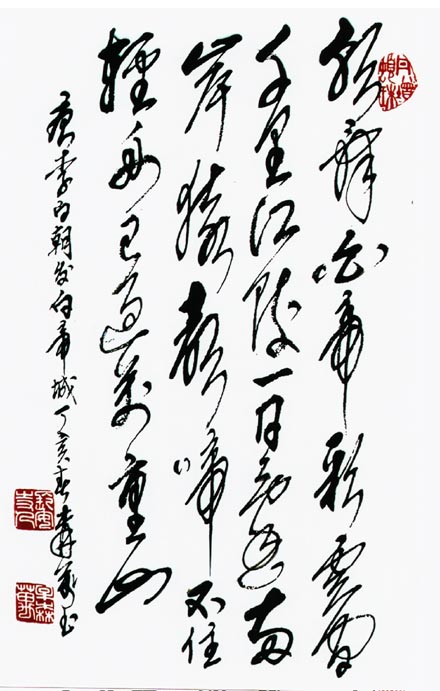 朝辭白帝彩雲間
千里江陵一日還兩
岸猿聲啼不住
輕舟已過萬重山
唐李白朝发白帝城丁亥春书